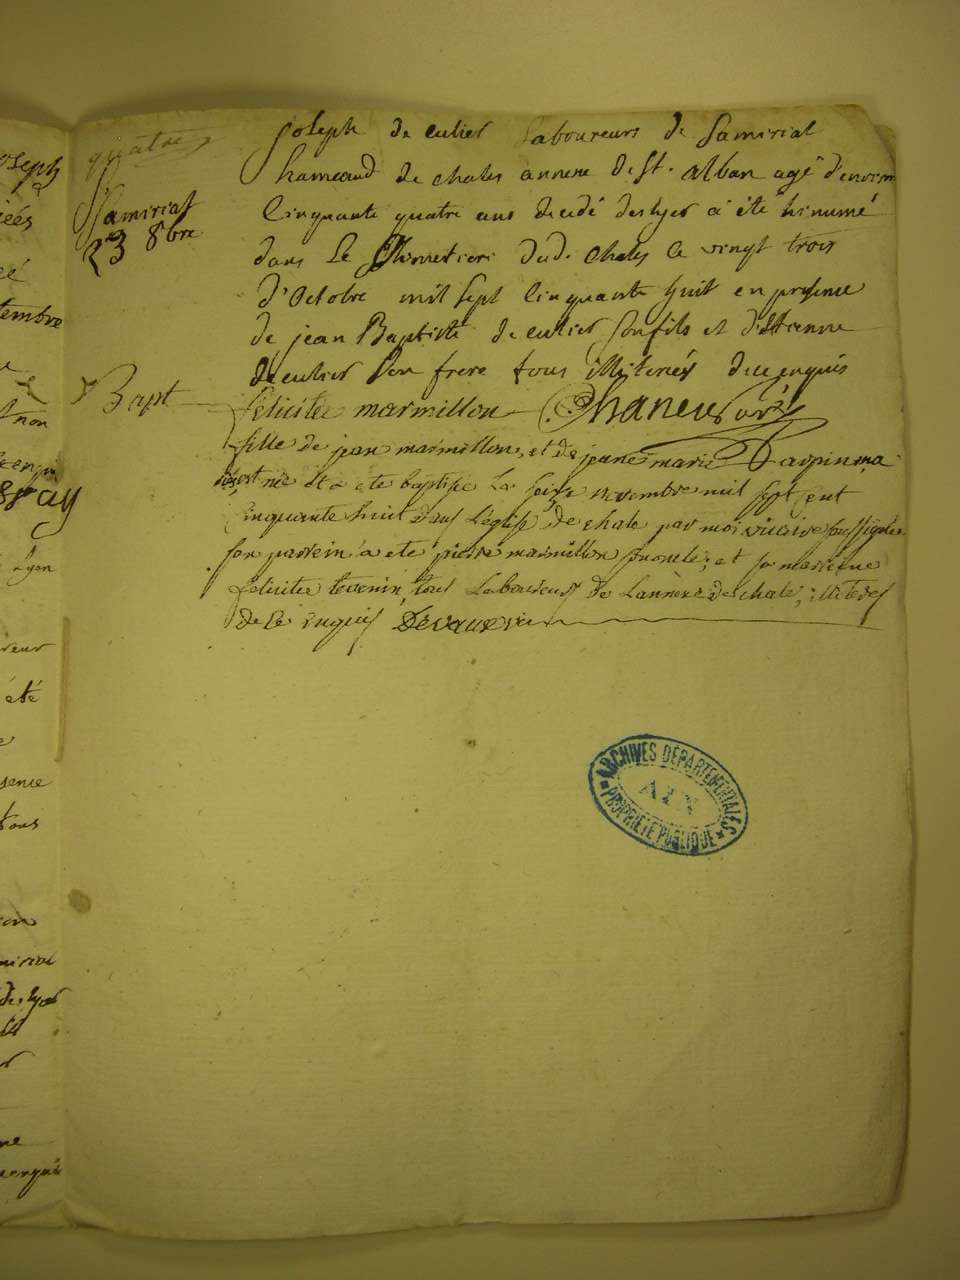 quatre
Joseph de culier laboureurs de Samiriat
Samiriat
23 8bre
hameaud de chales annexe de St. alban agé d'environ
Cinquante quatre ans decedé des hyer a été hinumé
dans le Cimetiere dud. Chales le vingt trois
d'Octobre mil sept Cinquante huit en presence
de jean Baptiste de culier son fils et d'Etienne
deculier son frere tous illiterés de ce enquis
Bapt
felicitée marmillon Chaneu Curé
fille de jean marmillon, et de jeanne marie
est née et a ete baptisé le seize novembre mil sept cent
Cinquante huit dans l'eglise de chale par moi vicaire soussigné
son parrein a ete pierre marmillon son oncle; et sa marreine
felicitée tevenin, tous laboureurs de l'annexe de chale, illiterés
de ce enquis Devaux vic
ARCHIVES DEPARTEMENTALES
AIN
PROPRIETE PUBLIQUE
oseph
tembre
non
Lyon
reur
été
sence
tous
miriat